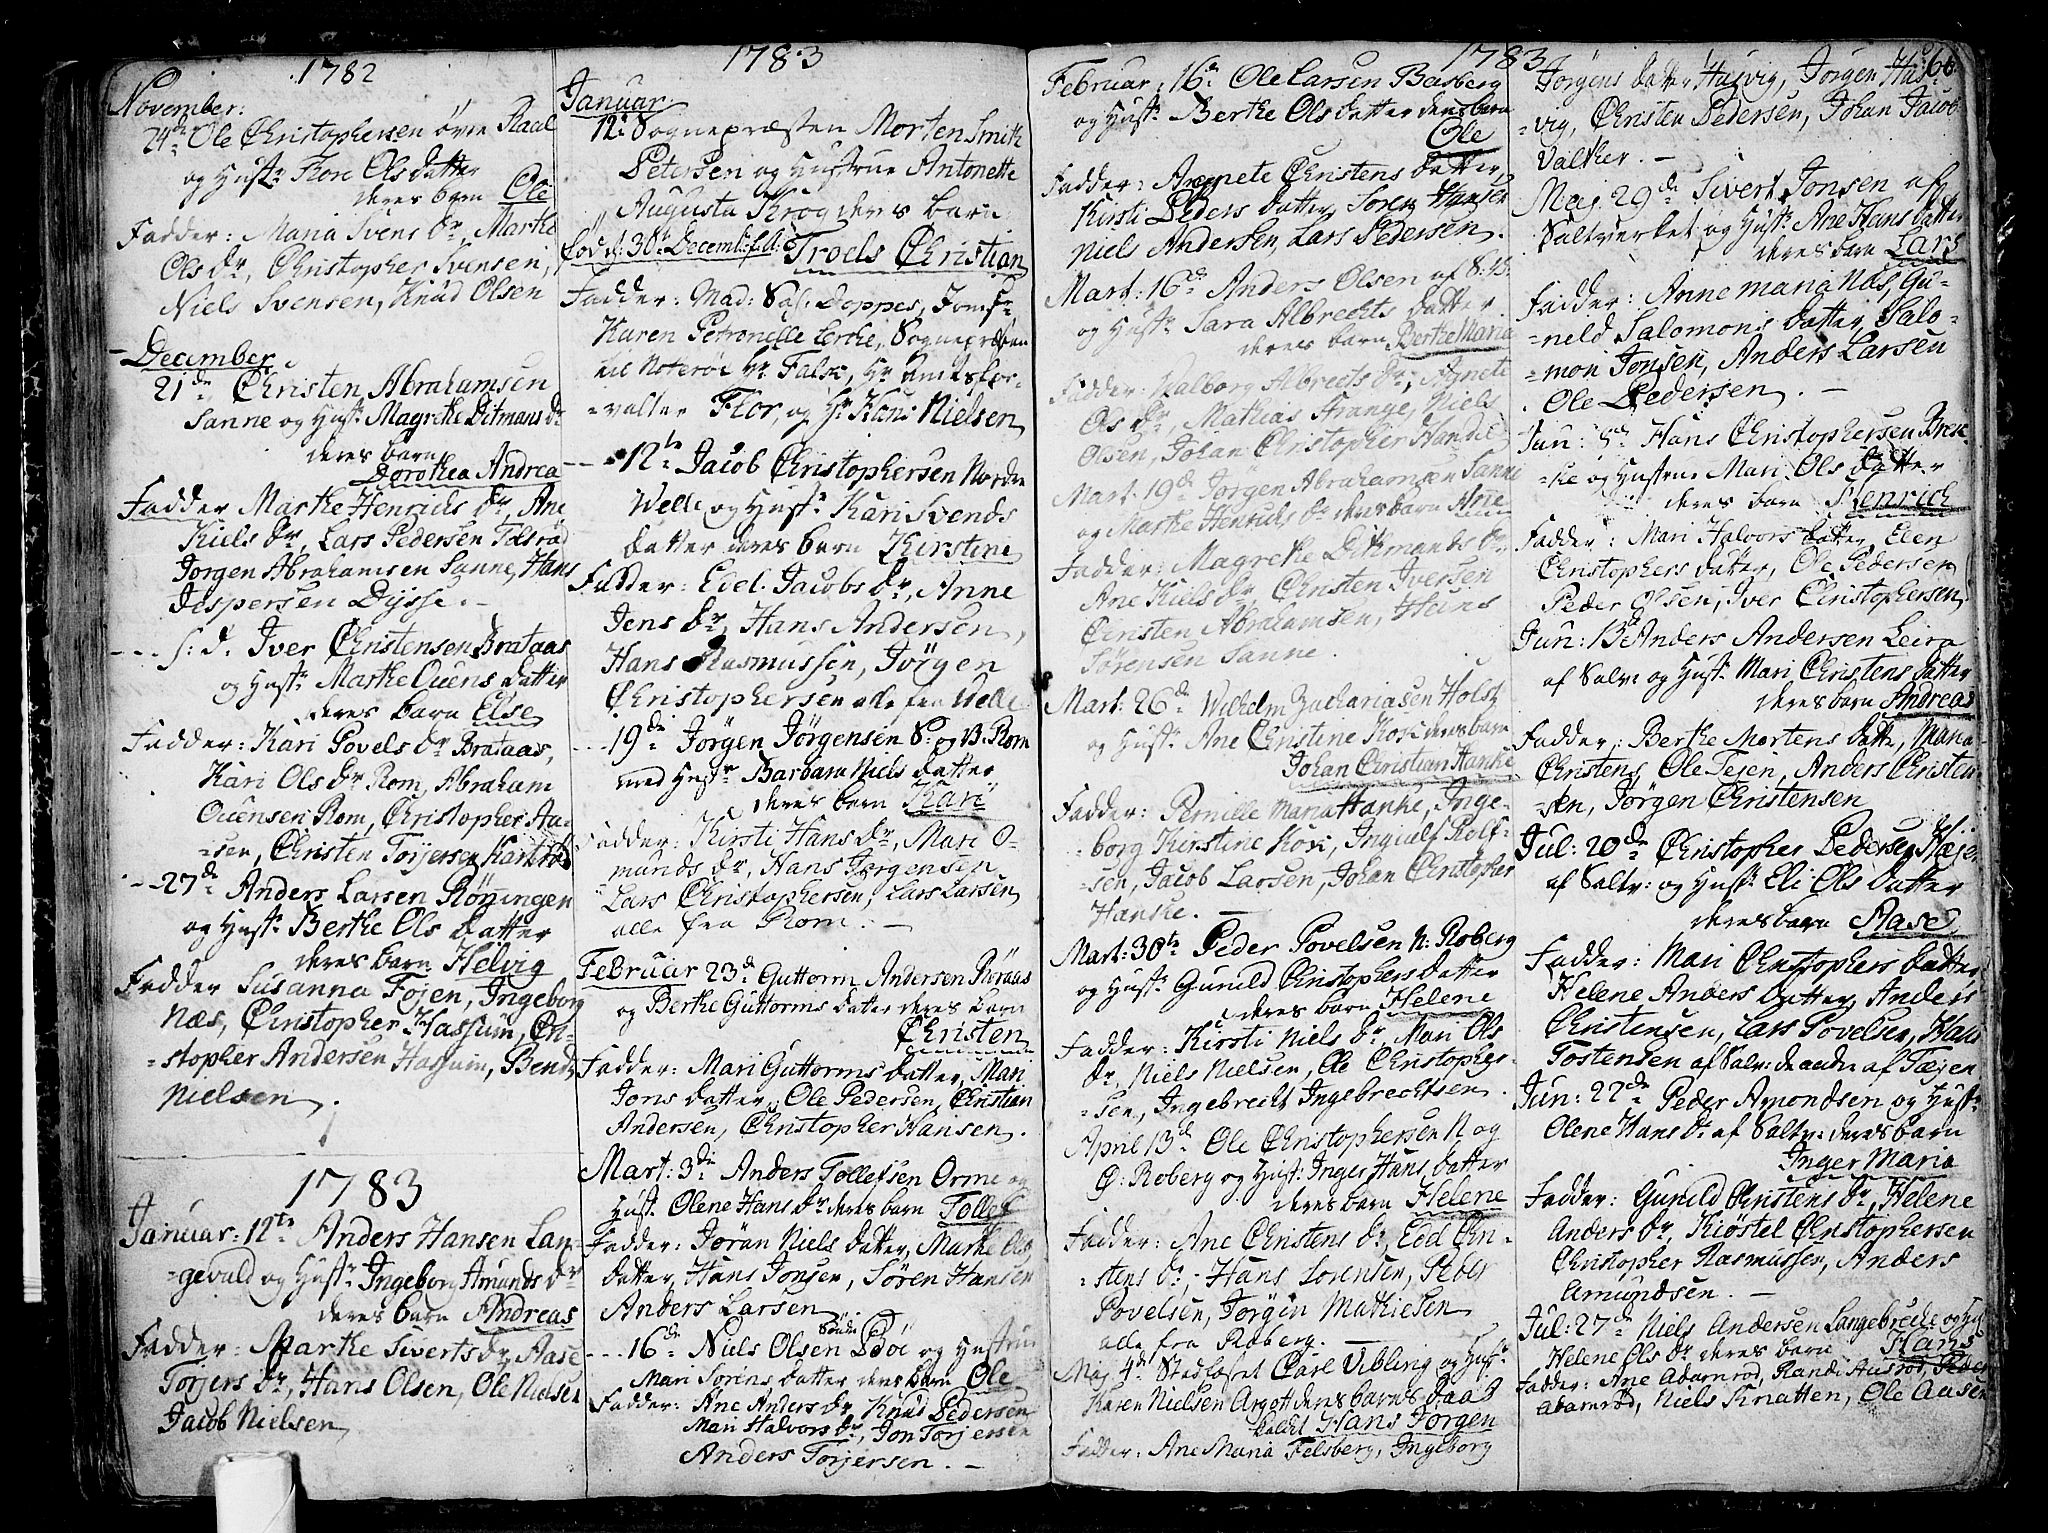 1782
November:
24de Ole Christophersen övre Raal
og Hustr Flore Olsdatter
deres barn Ole
Fadder: Maria Svens Dr, Marthe
Ols dr, Christopher Svensen,
Niels Svensen, Knud Olsen
December
21de Christen Abrahamsen
Sanne og Hustr Magrethe Ditmans dr
deres barn
Dorothea Andrea
Fadder Marthe Henrichs dr, Ane
Kiels dr, Lars Pedersen Tolsrød
Jørgen Abrahamsen Sanne, Hans
Jespersen Dysse. -
s: d. Iver Christensen Brataas
og Hustr Marthe Ouens datter
deres barn Else
Fadder: Kari Povels dr Brataas,
Kari Ols dr Rom, Abraham
Ouensen Rom, Christopher An-
-sen, Christen Torjersen
27de Anders Larsen Röningen
og Hustr Berthe Ols datter
deres barn Helvig
Fadder Susanna Föjen, Ingeborg
Næs, Christopher Hassum, Chri-
-stopher Andersen Hassum, Bendt
Nielsen.
1783
Januar: 12te Anders Hansen Lan-
-gevald og Hustr Ingebor Amunds dr
deres barn Andreas
Fadder: Marthe Siverts dr, Aase
Torjers dr, Hans Olsen, Ole Nielsen
Jacob Nielsen
1783
Januar:
12te Sognepræsten Morten Smith
Petersen og Hustrue Antonette
Augusta Krog deres barn
fød d: 30 Decemb: f. A. Troels Christian
Fadder: Mad: Sal: Doppes, Jomfr
Karen Petronelle Lerche, Sognepræsten
til Noterøe Hr Falck, Hr Amtsfor-
-valter Flor, og Hr Hans Nielsen
12te Jacob Christophersen Nordre
Welle og Hustr Kari Svends
datter deres barn Kirstine
Fadder: Edel Jacobs dr, Anne
Jens dr, Hans Andersen,
Hans Rasmussen, Jörgen
Christophersen alle fra Welle
19de Jörgen Jörgensen S: og B. Rom
med Hustr Barbara Niels datter
deres barn Kari
Fadder: Kirsti Hans dr, Mari O-
munds dr, Hans Jørgensen
Lars Christophersen, Lars Larsen
alle fra Rom. -
Februar 23d Guttorm Andersen Röraas
og Berthe Guttorms dater deres barn
Christen
Fadder: Mari Guttorms datter, Mari
Jons datter, Ole Pedersen, Christian
Andersen, Christopher Hansen.
Mart: 3die Anders Tollefsen Orme og
Hustr Olene Hans dr deres barn Tollef
Fadder: Jöran Niels datter, Marthe Ols
datter, Hans Jonsen, Sören Hansen
Anders Larsen
16de Niels Olsen Söndre Böe og Hustrue
Mari Sørens datter deres barn Ole
Fadder: Ane Anders dr, Knud Pedersen
Mari Halvors dr, Jon Torjersen
Anders Torjersen. -
1783
Februar: 16de Ole Larsen Basberg
og Hustr Berthe Ols datter deres barn
Ole
Fadder: Agnete Christens datter,
Kirsti Peders datter, Sören Hansen
Niels Andersen, Lars Pedersen.
Mart: 16de Anders Olsen af S: B:
og Hustr Sara Albrechts datter
deres barn Berthe Maria
Fadder: Walborg Albrects dr, Agnete
Ols dr, Mathias Strange, Niels
Olsen, Johan Christopher
Mart: 19d Jörgen Abrahamsen Sanne
og Marthe Henrichs dr deres barn Ane
Fadder: Magrethe Ditmands dr
Ane Kiels dr Christen Iversen
Christen Abrahamsen, Hans
Sörensen Sanne.
Mart: 26de Wilhelm Zachariasen Holst
og Hustr Ane Christine Kose deres barn
Johan Christian Hanke
Fadder: Pernille Maria Hanke, Inge-
-borg Kirstine Kose, Ingvalf Rolf-
-sen, Jacob Larsen, Johan Christopher
Hanke. -
Mart: 30te Peder Povelsen N: Roberg
og Hustr Gunild Christophersdatter
deres barn Helene
Fadder: Kirsti Niels dr, Mari Ols
dr, Niels Nielsen, Ole Christopher-
-sen, Ingebrecht Ingebrechtsen.
April 13d Ole Christophersen N. og
Ø: Roberg og Hustr Inger Hans datter
deres barn Helene
Fadder: Ane Christens dr, Edel Chri-
-stens dr, Hans Sorensen, Peder
Povelsen, Jörgen Mathiesen
alle fra Roberg. -
Maj 4d Stedlöset Carl Vibling og Hustr
Karen Nielsen Argott deres barns Daab
kaldet Hans Jörgen
Fadder: Ane Maria Felsberg, Ingeborg
66
Jörgens datter Husvig, Jörgen Hus-
-vig, Christen Pedersen, Johan Jacob
Valther. -
Maj 29de Sivert Jonsen af
Saltverket og Hustr Ane Hans datter
deres barn Lars
Fadder: Anne maria Næs, Gu-
-neld Salomons datter, Salo-
-mon Jonsen, Anders Larsen
Ole Pedersen. -
Jun: 8d Hans Christophersen Brek-
-ke og Hustrue Mari Ols datter
deres barn Henrich
Fadder: Mari Halvors datter, Elen
Christophers datter, Ole Pedersen
Peder Olsen, Iver Christophersen
Jun: Anders Andersen Leira
af Salv: og Hustr Mari Christens datter
deres barn Andreas
Fadder: Berthe Mortens datter, Maria
Christens, Ole Tejen, Anders Christen-
-sen, Jörgen Christensen
Jul: 20de Christopher Pedersen Højen
af Saltv: og Hustr Eli Ols datter
deres barn Aase
Fadder: Mari Christophers datter
Helene Anders datter, Anders
Christensen, Lars Povelsen, Hans
Tostensen af Salv: de andre af Tæjen
Jun: 22de Peder Amondsen og Hustr
Olene Hans dr af Saltv: deres barn
Inger Maria
Fadder: Gunild Christens dr, Helene
Anders dr, Kiöstel Christophersen
Christopher Rasmussen, Anders
Amundsen. -
Jul: 27de Niels Andersen Langebrede og Hust
Helene Ols dr deres barn Hans
Fadder: Ane Adamrød, Randi Ausrod, Peder
Adamrød, Niels Knatten, Ole Aasen